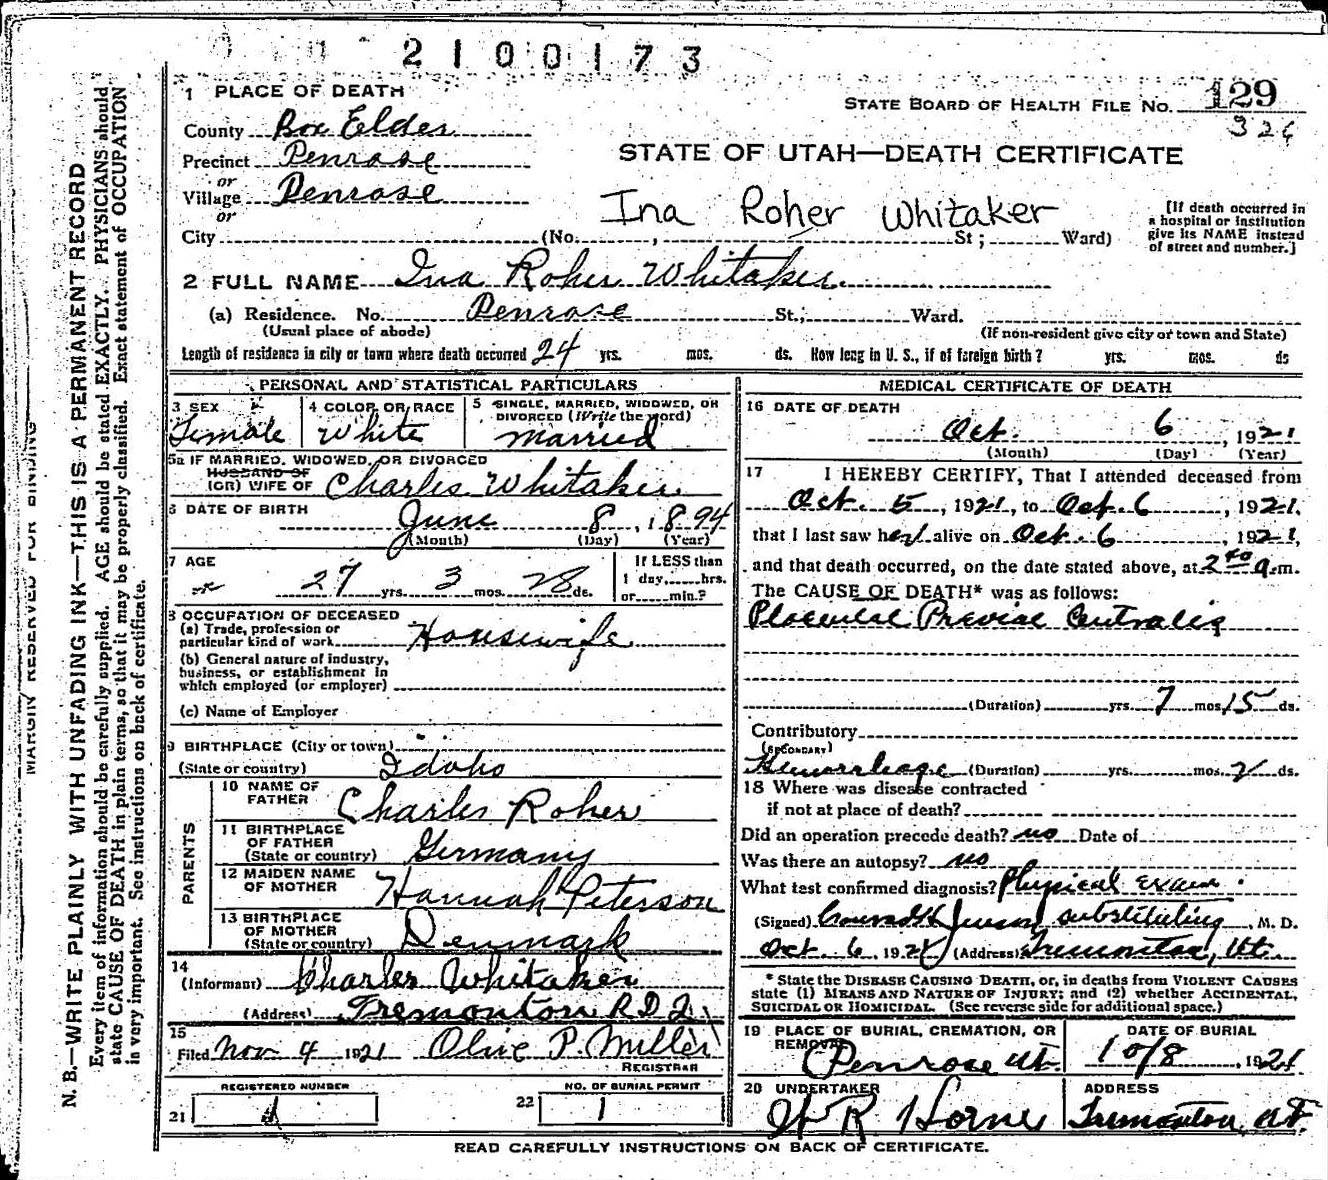 2100173
1 PLACE OF DEATH
STATE BOARD OF HEALTH FILE NO. 129
326
County Box Elder
Precinct Penrose
or
Village Penrose
or
STATE OF UTAH—DEATH CERTIFICATE
Ina Roher Whitaker
City (No. , St; Ward)
[If death occurred in
a hospital or institution
give its NAME instead
of street and number.]
2 FULL NAME Ina Roher Whitaker
(a) Residence. No. Penrose St.; Ward.
(Usual place of abode)
(If non-resident give city or town and State)
Length of residence in city or town where death occurred 24 yrs. mos. ds. How long in U. S., if of foreign birth? yrs. mos. ds
PERSONAL AND STATISTICAL PARTICULARS
3 SEX
Female
4 COLOR OR RACE
White
5 SINGLE, MARRIED, WIDOWED, OR
DIVORCED (Write the word)
married
5a IF MARRIED, WIDOWED, OR DIVORCED
HUSBAND OF
(OR) WIFE OF Charles Whitaker
6 DATE OF BIRTH
June 8, 1894
(Month) (Day) (Year)
7 AGE
27 yrs. 3 mos. 28 ds.
If LESS than
1 day, hrs.
or min.?
8 OCCUPATION OF DECEASED
(a) Trade, profession or
particular kind of work Housewife
(b) General nature of industry,
business, or establishment in
which employed (or employer)
(c) Name of Employer
9 BIRTHPLACE (City or town)
(State or country) Idaho
PARENTS
10 NAME OF
FATHER Charles Roher
11 BIRTHPLACE
OF FATHER
(State or country) Germany
12 MAIDEN NAME
OF MOTHER Hannah Peterson
13 BIRTHPLACE
OF MOTHER
(State or country) Denmark
14
(Informant) Charles Whitaker
(Address) Tremonton R.D.2
15
Filed Nov 4 1921 Olive P. Miller
REGISTRAR
REGISTERED NUMBER
21
NO. OF BURIAL PERMIT
22 1
MEDICAL CERTIFICATE OF DEATH
16 DATE OF DEATH
Oct. 6, 1921
(Month) (Day) (Year)
17 I HEREBY CERTIFY, That I attended deceased from
Oct. 5, 1921, to Oct. 6, 1921.
that I last saw her alive on Oct. 6, 1921,
and that death occurred, on the date stated above, at 2 40 a.m.
The CAUSE OF DEATH* was as follows:
Placental Previae Centralis
(Duration) yrs. 7 mos. 15 ds.
Contributory
(SECONDARY)
Hemorrhage (Duration) yrs. mos. 2 ds.
18 Where was disease contracted
if not at place of death?
Did an operation precede death? no Date of
Was there an autopsy? no
What test confirmed diagnosis? Physical exam.
(Signed) Jensen substituting, M. D.
Oct. 6, 1921 (Address) Tremonton, Ut.
* State the DISEASE CAUSING DEATH, or, in deaths from VIOLENT CAUSES
state (1) MEANS AND NATURE OF INJURY; and (2) whether ACCIDENTAL,
SUICIDAL OR HOMICIDAL. (See reverse side for additional space.)
19 PLACE OF BURIAL, CREMATION, OR
REMOVAL
Penrose Ut.
DATE OF BURIAL
10/8, 1921
20 UNDERTAKER
W R Horne
ADDRESS
Tremonton, Ut.
READ CAREFULLY INSTRUCTIONS ON BACK OF CERTIFICATE.
MARGIN RESERVED FOR BINDING
N. B.—WRITE PLAINLY WITH UNFADING INK—THIS IS A PERMANENT RECORD
Every item of information should be carefully supplied. AGE should be stated EXACTLY. PHYSICIANS should
state CAUSE OF DEATH in plain terms, so that it may be properly classified. Exact statement of OCCUPATION
is very important. See instructions on back of certificate.